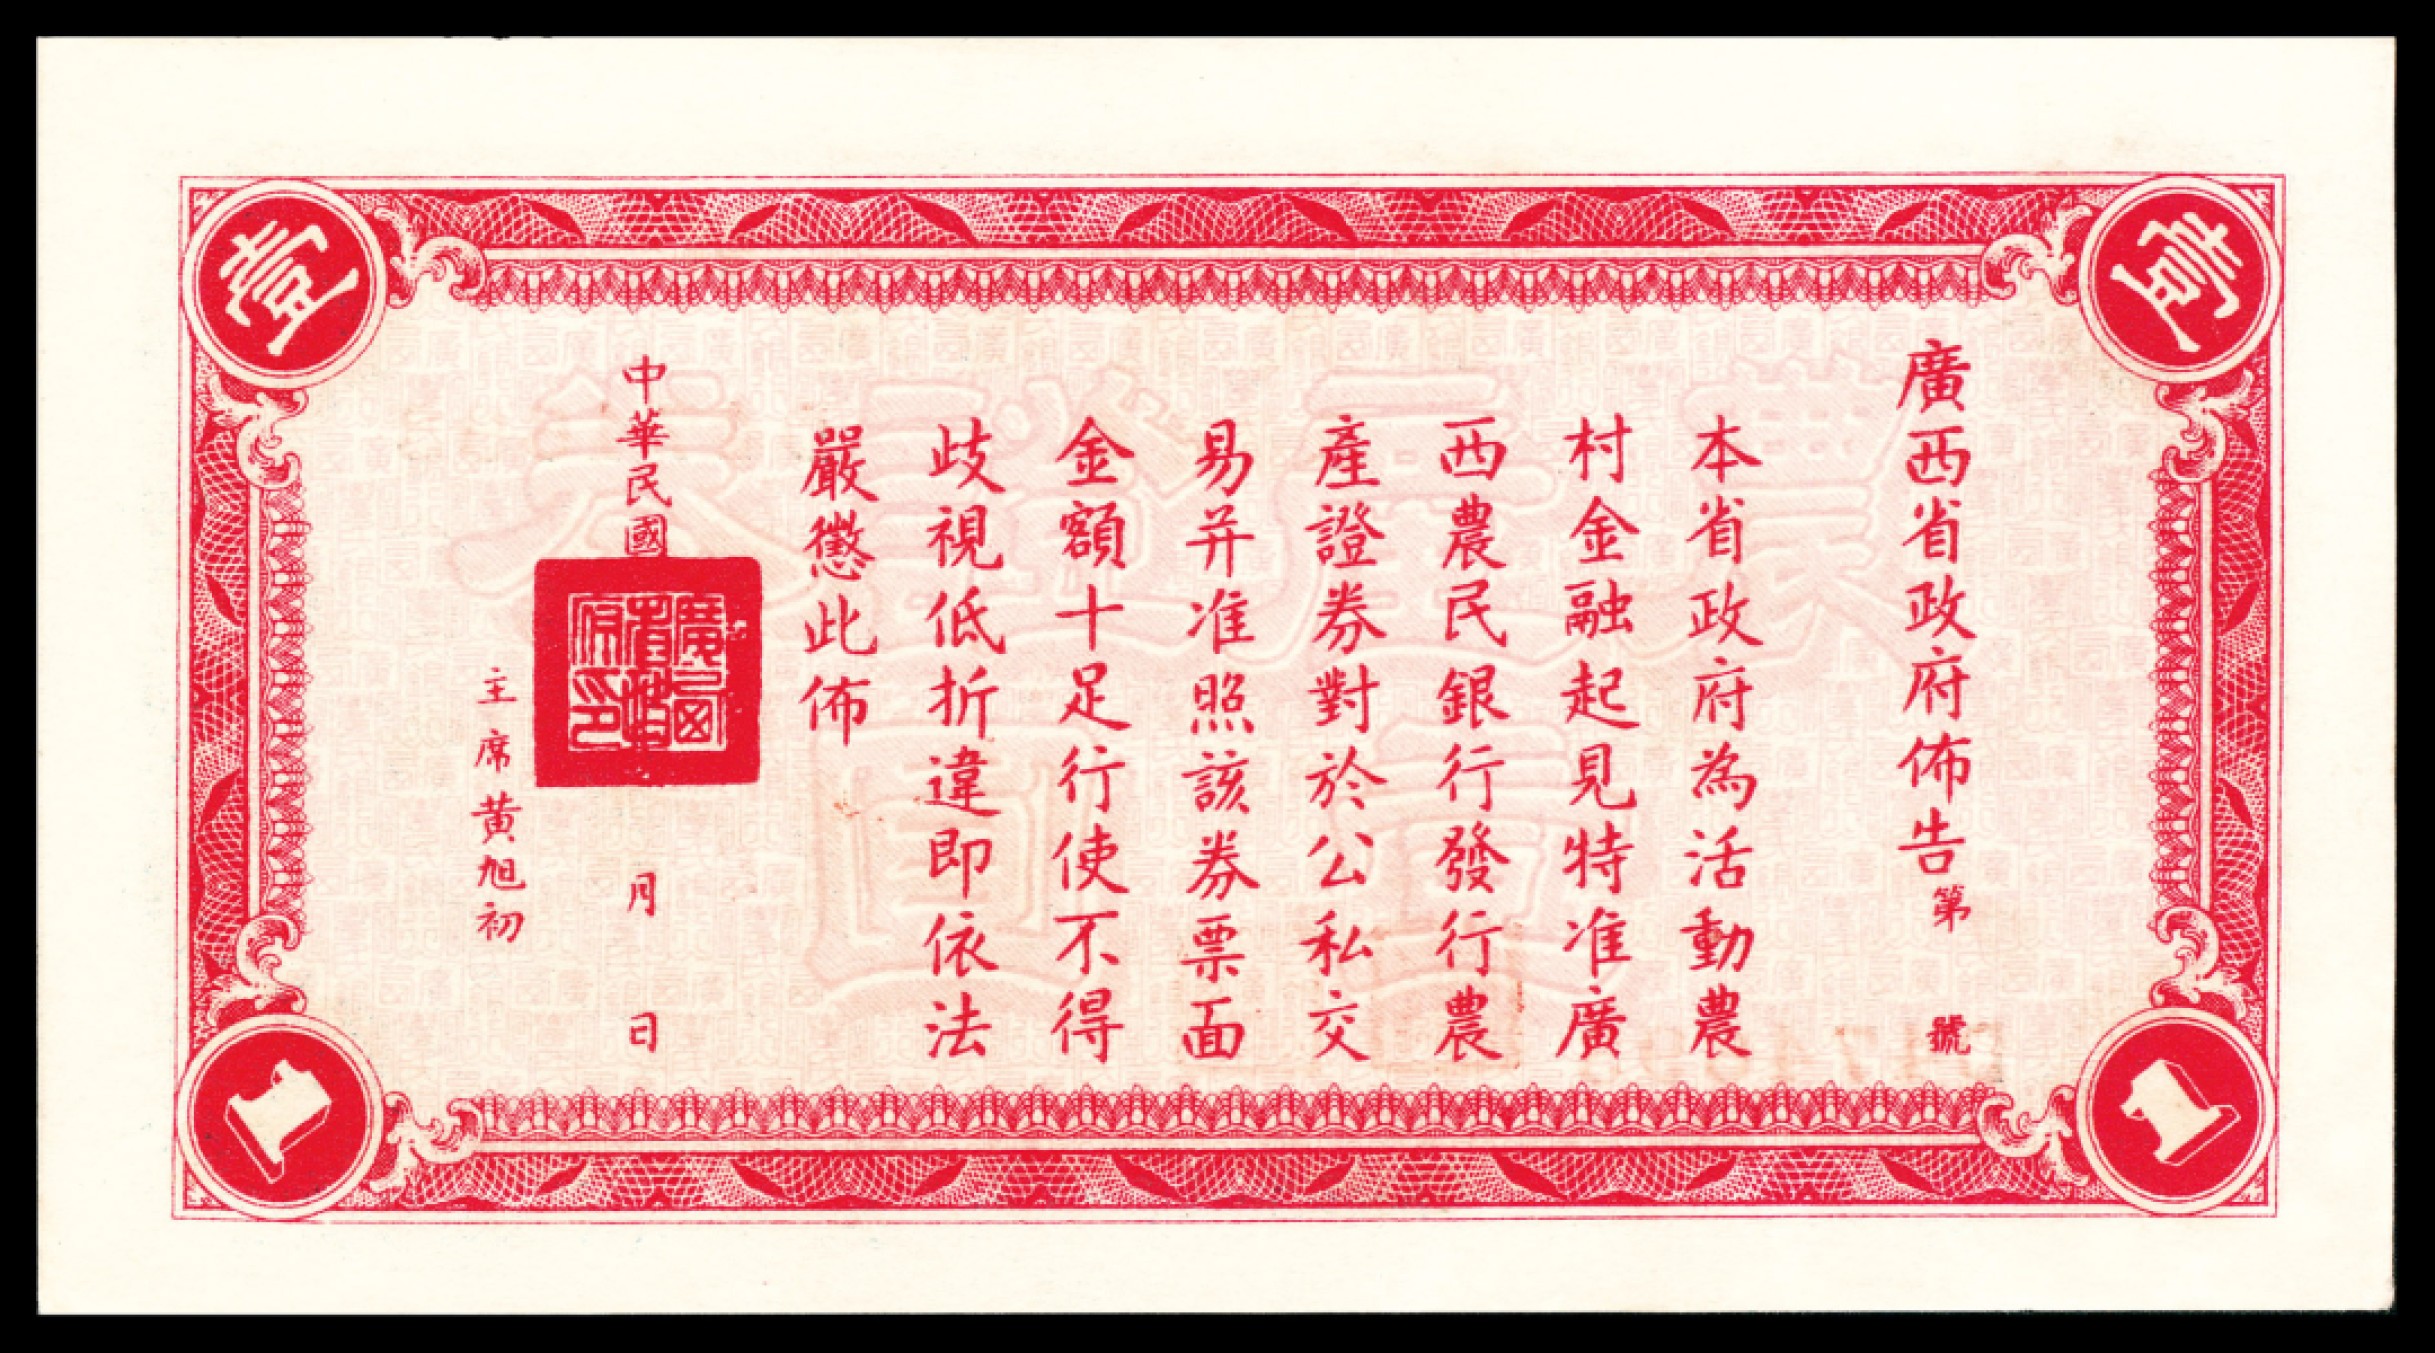 壹
壹
廣西省政府佈告第 號
本省政府為活動農
村金融起見特准廣
西農民銀行發行農
產證券對於公私交
易并准照該券票面
金額十足行使不得
歧視低折違即依法
嚴懲此佈
中華民國 月 日
廣西
省政
府印
主席黃旭初
農產證券
壹圓
1
1